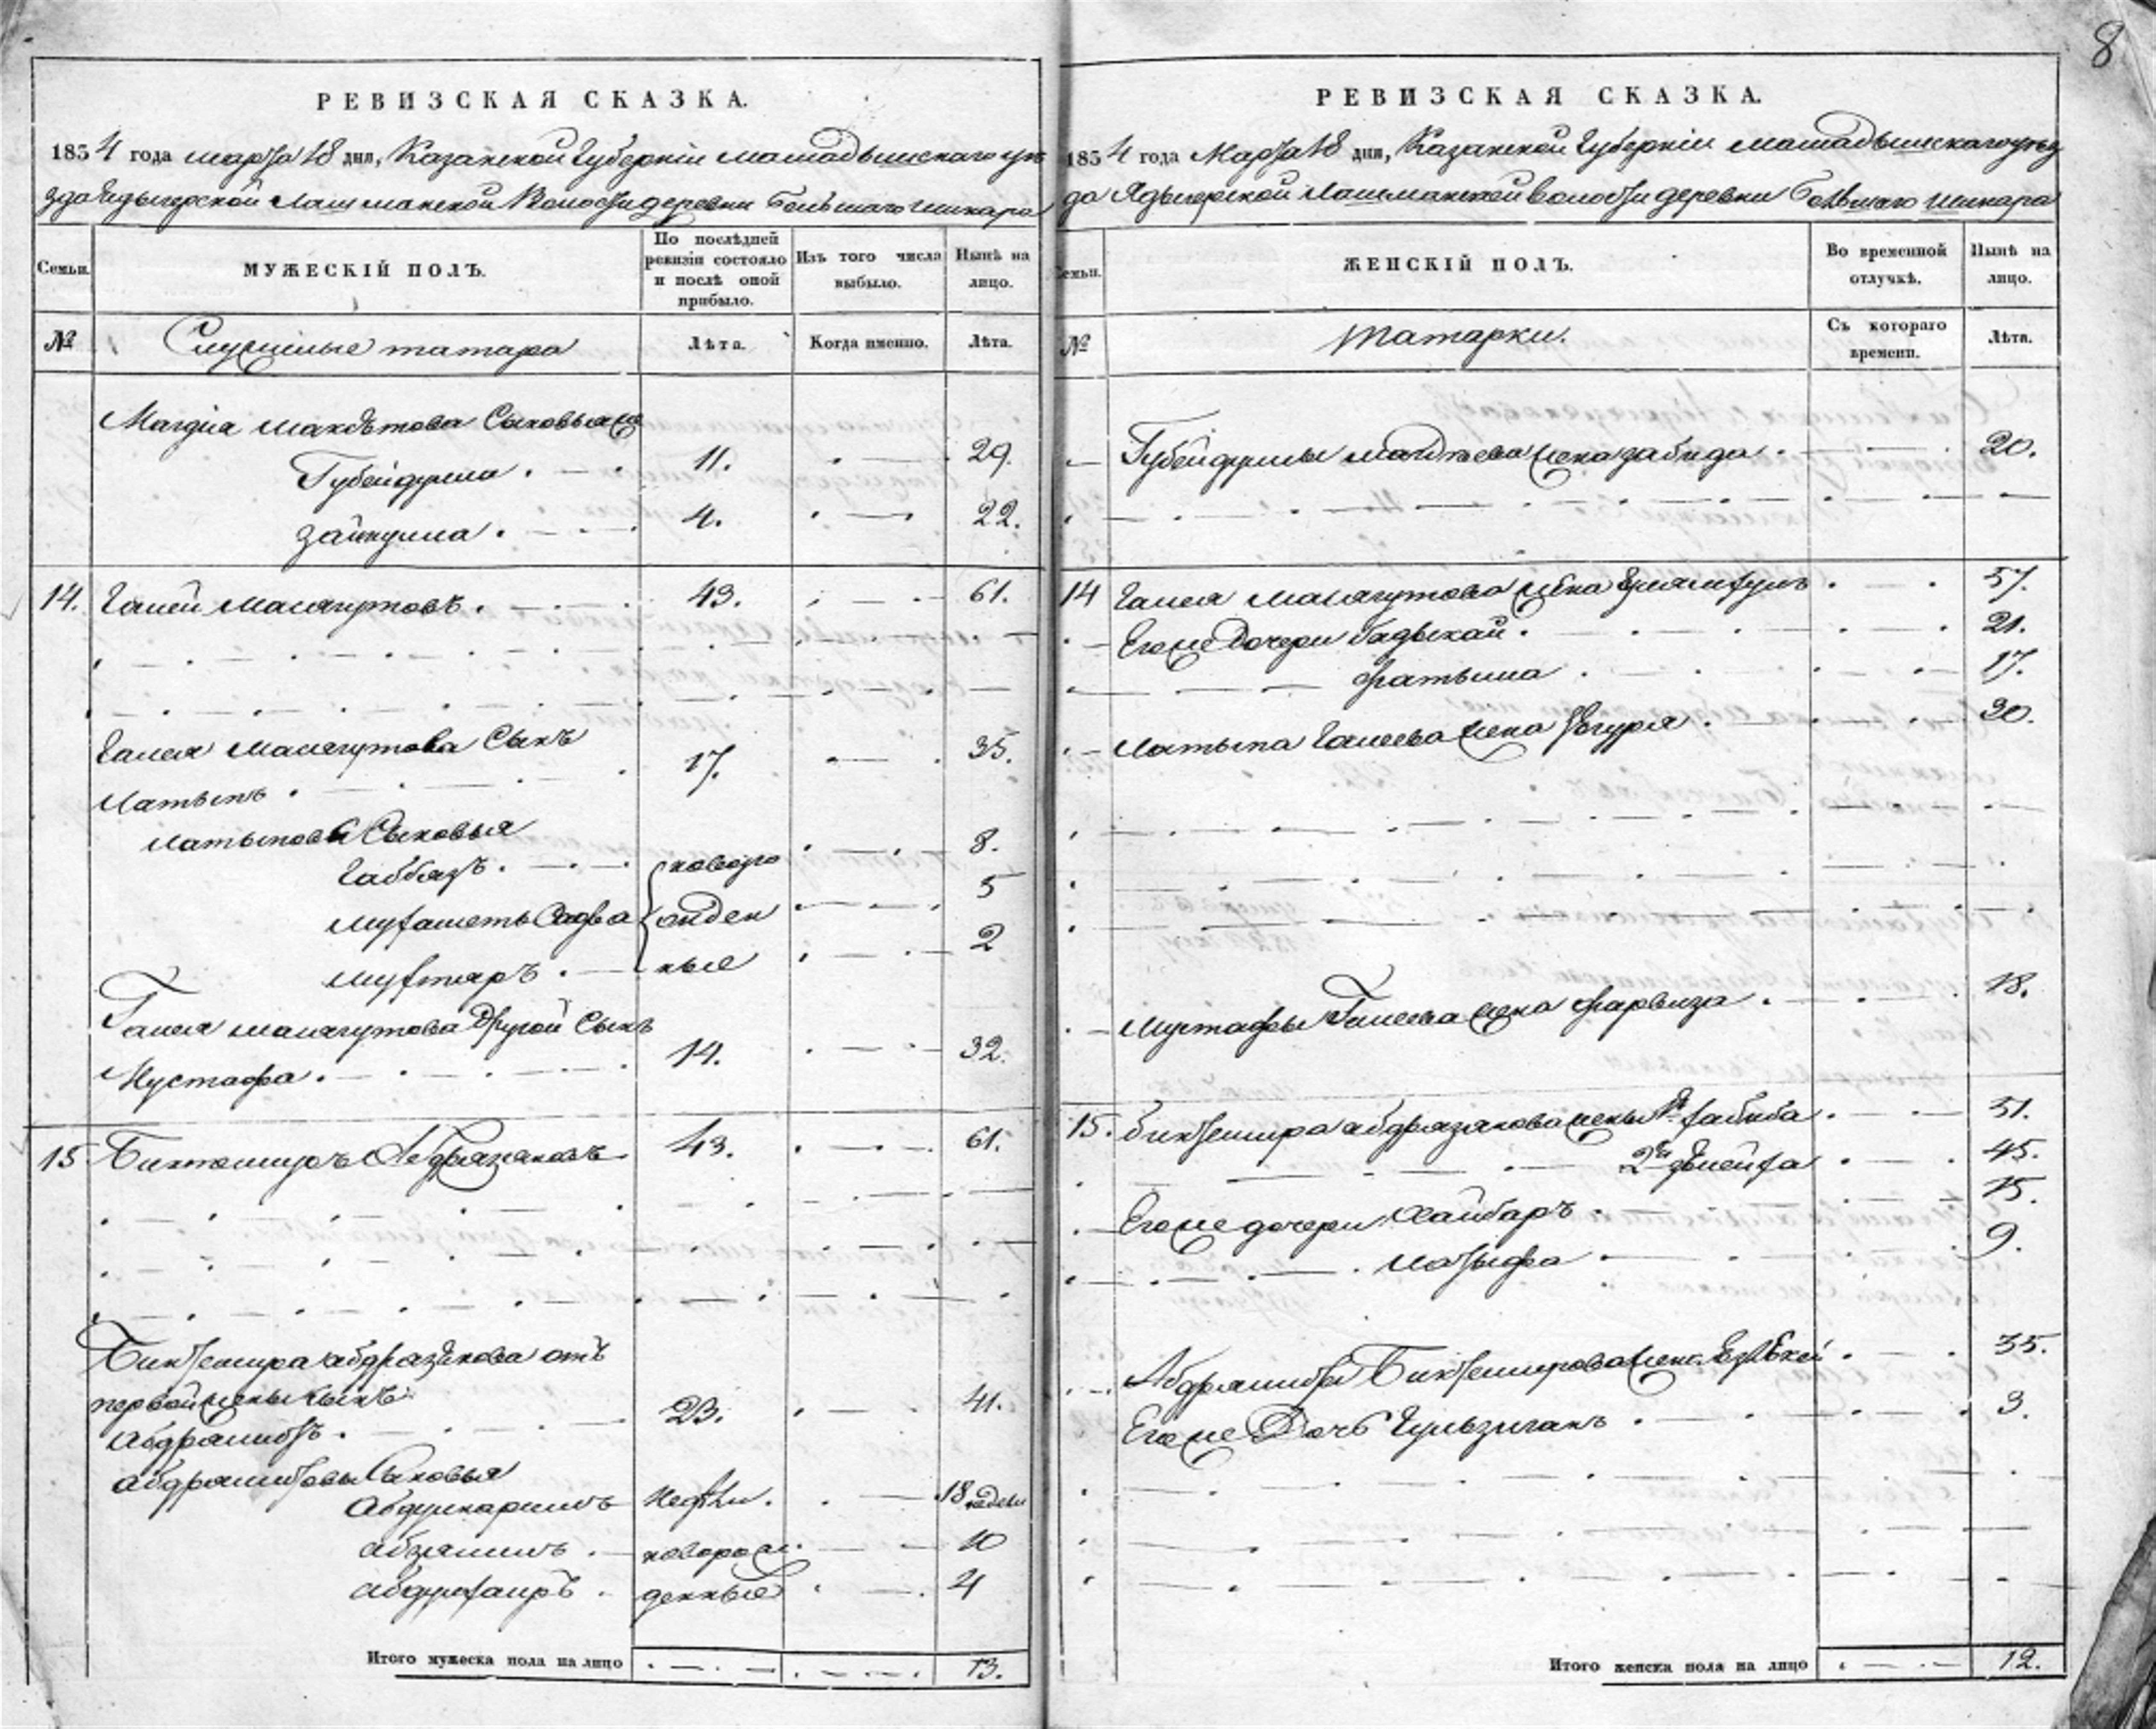 8
РЕВИЗСКАЯ СКАЗКА.
1854 года марта 18 дня, Казанской Губерніи Мамадышскаго уѣ
зда Ядыгерской Лашманской Волости деревни Большаго Шинара
Семьи. МУЖЕСКІЙ ПОЛЪ. По послѣдней ревизіи состояло и послѣ оной прибыло. Изъ того числа выбыло. Нынѣ на лицо.
№ Служилые татара Лѣта. Когда именно. Лѣта.
Сыновья
Губейдулла 11. 29.
Зайнулла 4. 22.
14. Галей Малягутовъ 43. 61.
Галея Малягутова Сынъ
Латыпъ 17. 35.
Латыповы Сыновья
Габбязъ 8.
новоро
5
жден
Мухтяръ ные 2
Галея Малягутова Другой Сынъ
Мустафа 14. 32.
15 Биктемиръ Абдрязяковъ 43. 61.
Биктемира Абдразякова отъ
первой жены сынъ
Абдрашитъ 23. 41.
Абдрашитовы Сыновья
Абдулкаримъ недѣли. 18 недели
Абзялилъ новорож. 10
денные 4
Итого мужеска пола на лицо 13.
РЕВИЗСКАЯ СКАЗКА.
1854 года Марта 18 дня, Казанской Губерніи Мамадышскаго уѣз
да Ядыгерской Лашманской волости деревни Большаго Шинара
Семьи. ЖЕНСКІЙ ПОЛЪ. Во временной отлучкѣ. Нынѣ на лицо.
№ Татарки. Съ котораго времени. Лѣта.
Губейдуллы жена Забида 20.
14 Галея Малягутова жена 57.
Его же Дочери 21.
Фатыма 17.
Латыпа Галеева жена 30.
Мустафы Галеева жена 18.
15. Биктемира Абдрязякова жены 1я Хабиба 51.
2я 45.
Его же дочери Хайбаръ 15.
Латыфа 9.
Абдрашита Биктемирова жена 35.
Его же Дочь Гульзиганъ 3.
Итого женска пола на лицо 12.